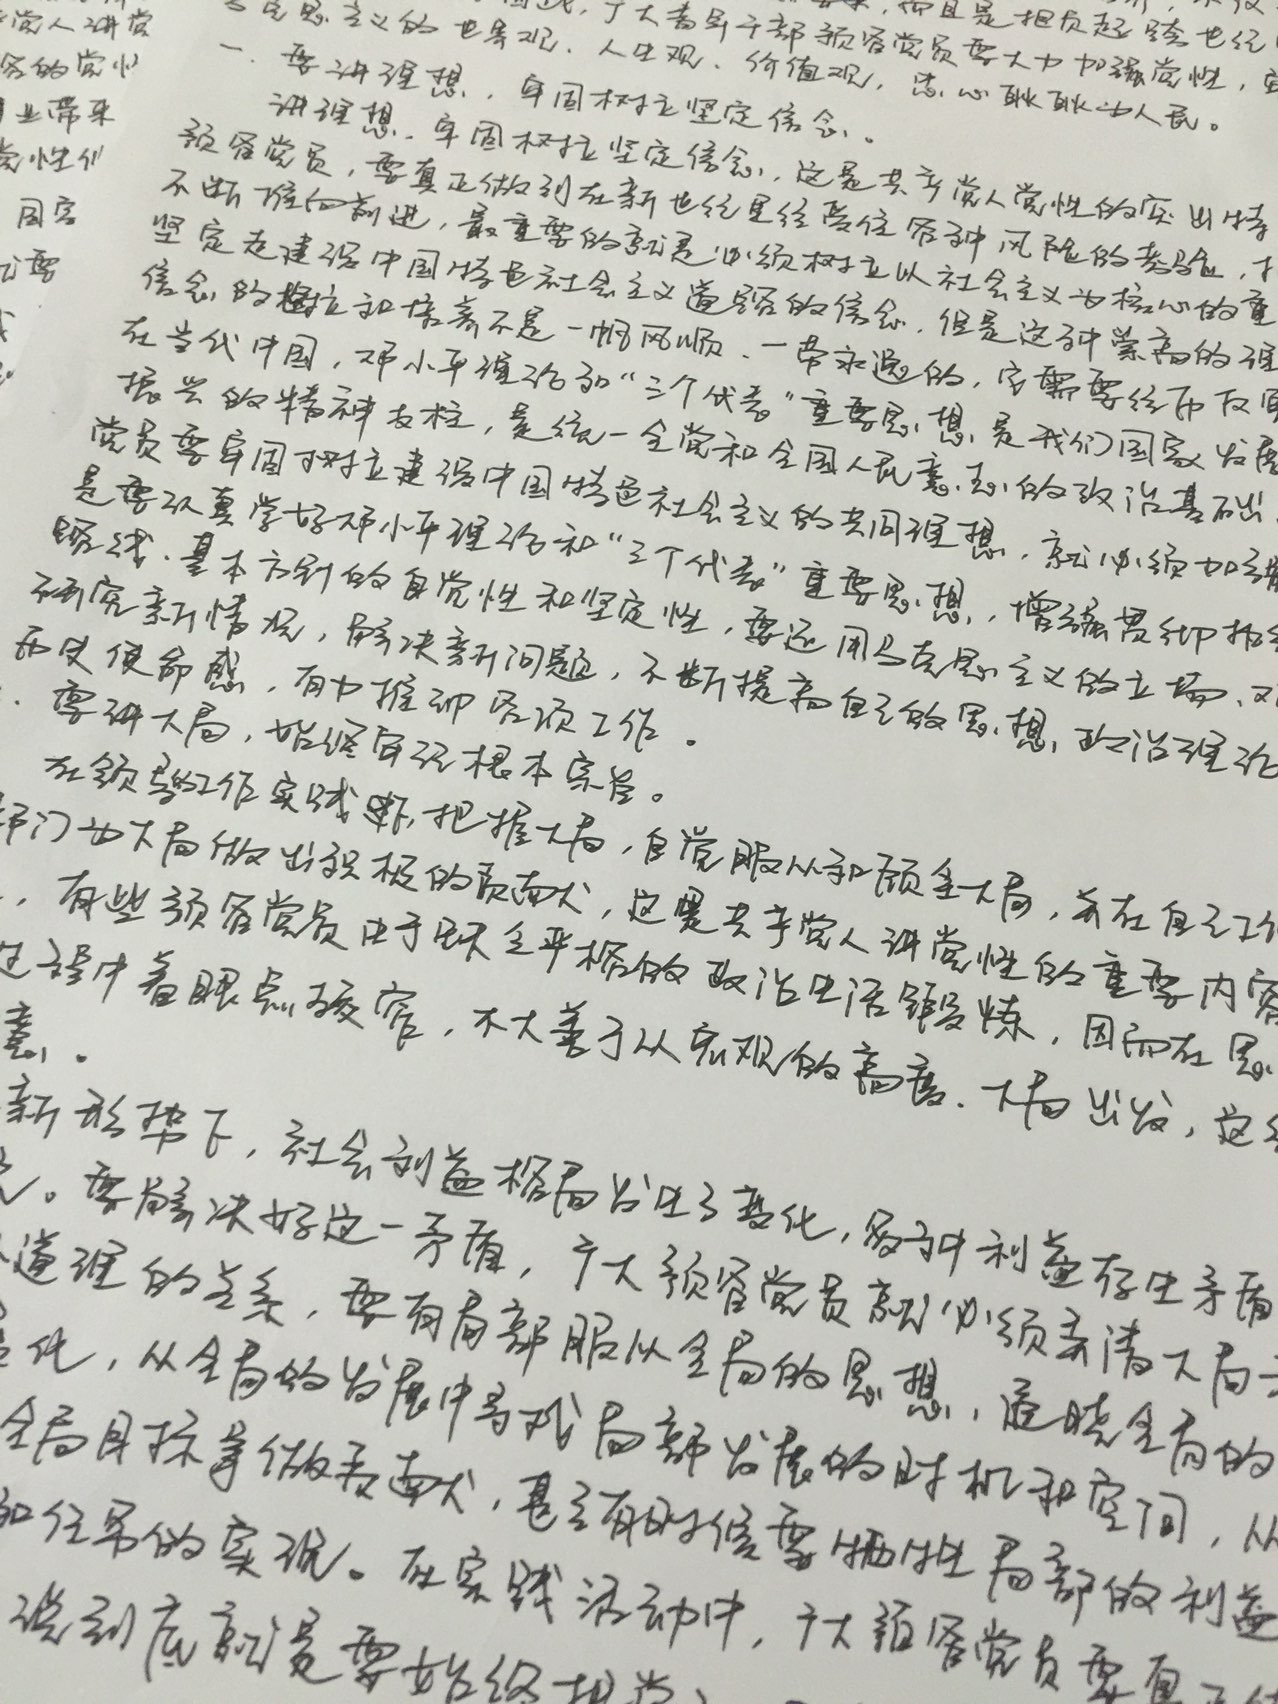 党人讲党
的党性
业带来
党性
国家
要
广大青年干部预备党员要大力加强党性,
主义的世界观、人生观、价值观,忠心耿耿为人民。
一、要讲理想,牢固树立坚定信念。
讲理想,牢固树立坚定信念,这是共产党人党性的突出特
预备党员,要真正做到在新世纪里经受住各种风险的考验,
不断推向前进,最重要的就是必须树立以社会主义为核心的
坚定走建设中国特色社会主义道路的信念,但是这种崇高的理
信念的树立和培养不是一帆风顺、一劳永逸的,它需要经历反
在当代中国,邓小平理论和“三个代表”重要思想是我们国家发展
振兴的精神支柱,是统一全党和全国人民意志的政治基础
党员要牢固树立建设中国特色社会主义的共同理想,就必须加强
是要认真学好邓小平理论和“三个代表”重要思想,增强贯彻
路线、基本方针的自觉性和坚定性,要运用马克思主义的立场、
研究新情况,解决新问题,不断提高自己的思想、政治理论
历史使命感,有力推动各项工作。
、要讲大局,始终牢记根本宗旨。
在领导工作实践中,把握大局,自觉服从和顾全大局,并在自己工作
部门为大局做出积极的贡献,这是共产党人讲党性的重要内容
,有些预备党员由于缺乏严格的政治生活锻炼,因而在思
过程中着眼点较窄,不大善于从宏观的高度、大局出发,这
意。
新形势下,社会利益格局发生了变化,各种利益存在矛盾
。要解决好这一矛盾,广大预备党员就必须弄清大局
道理的关系,要有局部服从全局的思想,通晓全局的
化,从全局的发展中寻找局部发展的时机和空间,从
全局目标拿做贡献,甚至有时候要牺牲局部的利益
和任务的实现。在实践活动中,广大预备党员要真
说到底就是要始终把党